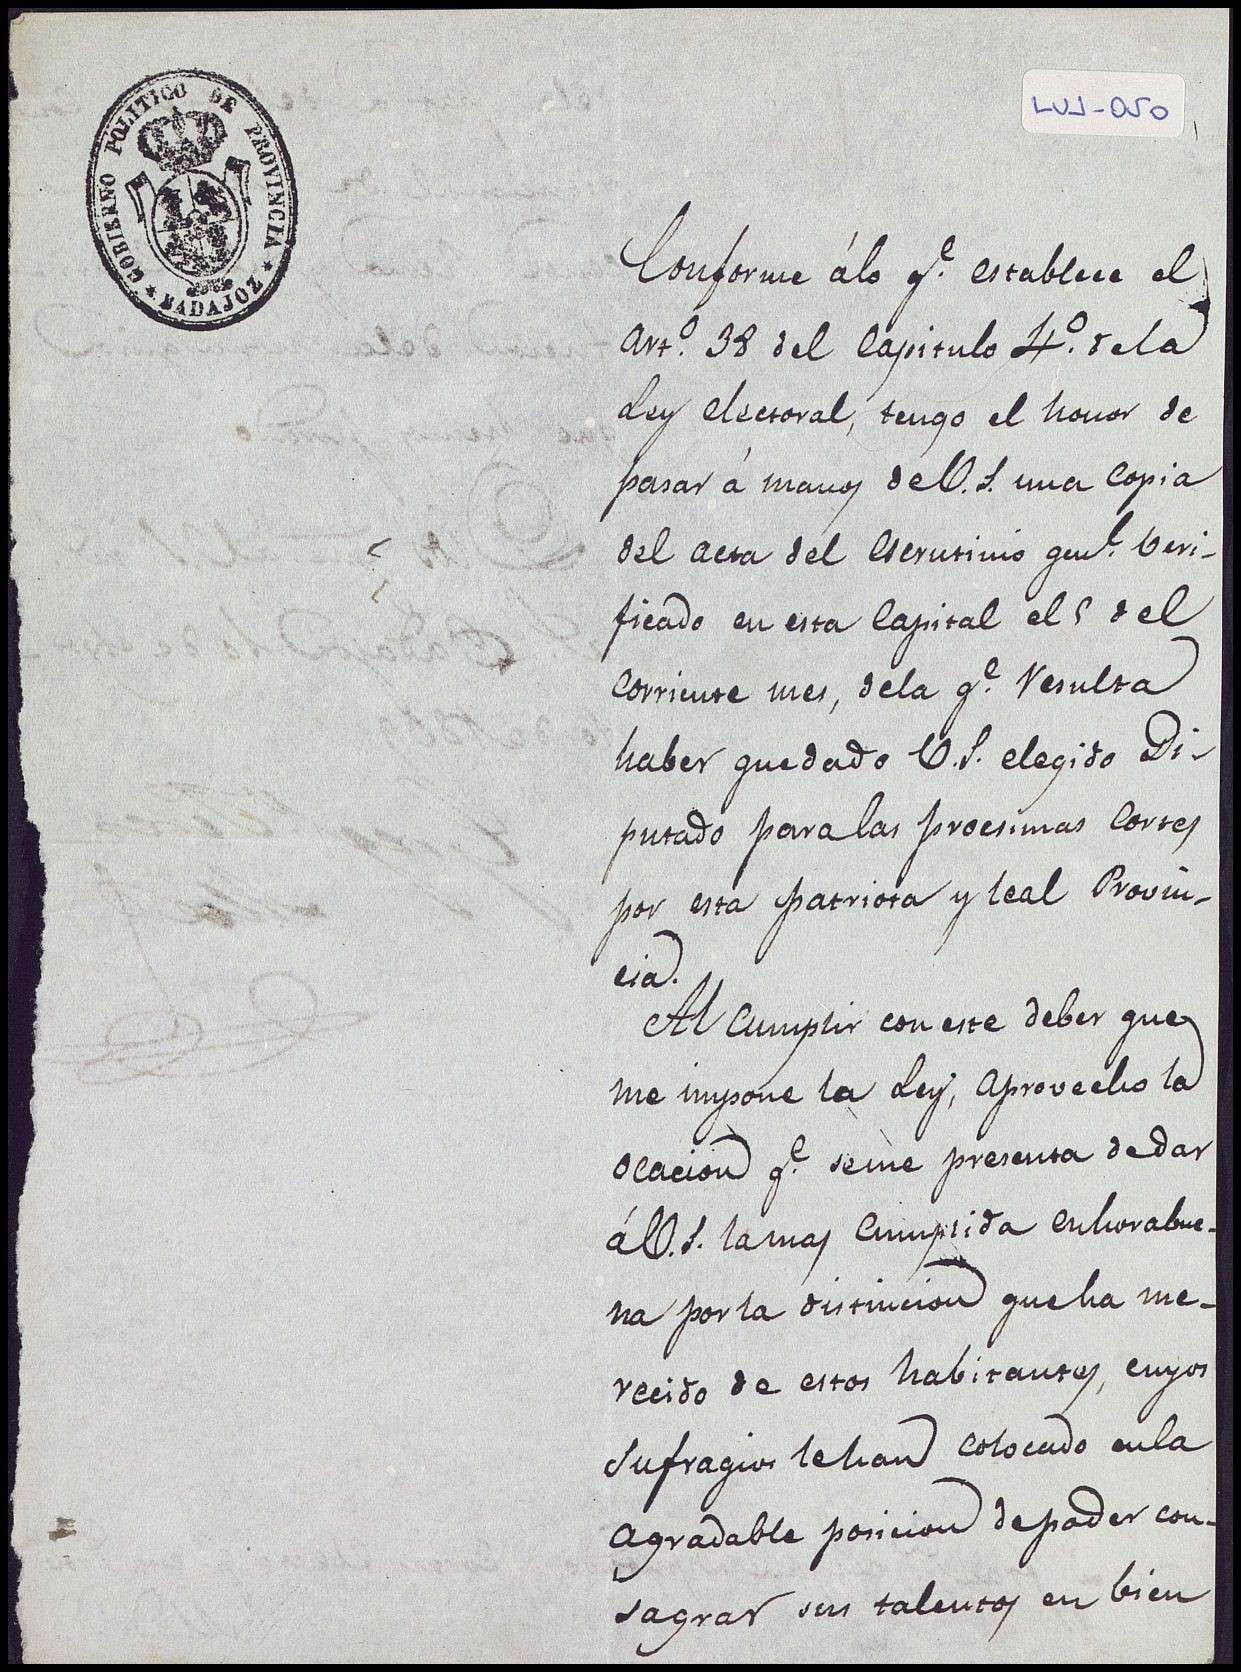 GOBIERNO POLITICO DE PROVINCIA
* BADAJOZ *
LUJ-050
Conforme álo q.e establece el
Art.o 38 del Capitulo 4.o dela
Ley electoral, tengo el honor de
pasar á manos deV.S. una Copia
del acta del escrutinio gen.l veri-
ficado en esta Capital el 5 del
corriente mes, dela q.e resulta
haber quedado V.S. elegido Di-
putado para las procsimas Cortes
por esta patriota y leal Provin-
cia.
Al cumplir con este deber que
me impone la Ley, aprovecho la
ocacion q.e seme presenta de dar
áV.S. lamas cumplida enhorabue-
na por la distincion que ha me-
recido de estos habitantes, cuyos
sufragios le han colocado en la
agradable posicion de poder con-
sagrar sus talentos en bien